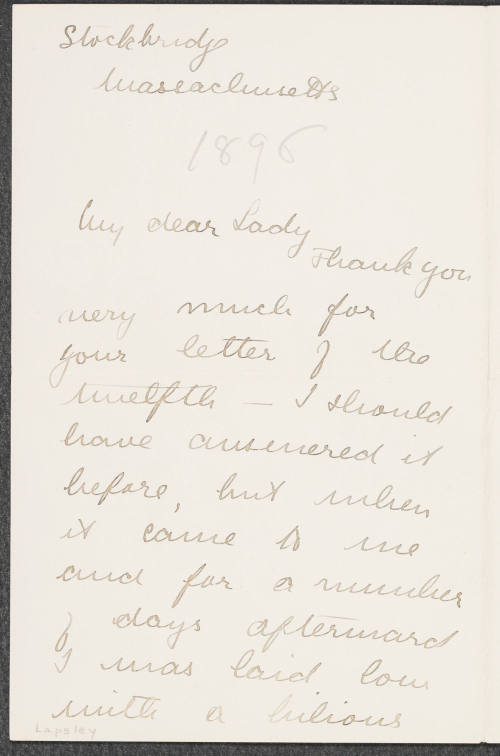 Stockbridge
Massachusetts
1896
My dear Lady
Thank you
very much for
your letter of the
twelfth — I should
have answered it
before, but when
it came to me
and for a number
of days afterward
I was laid low
with a bilious
Lapsley